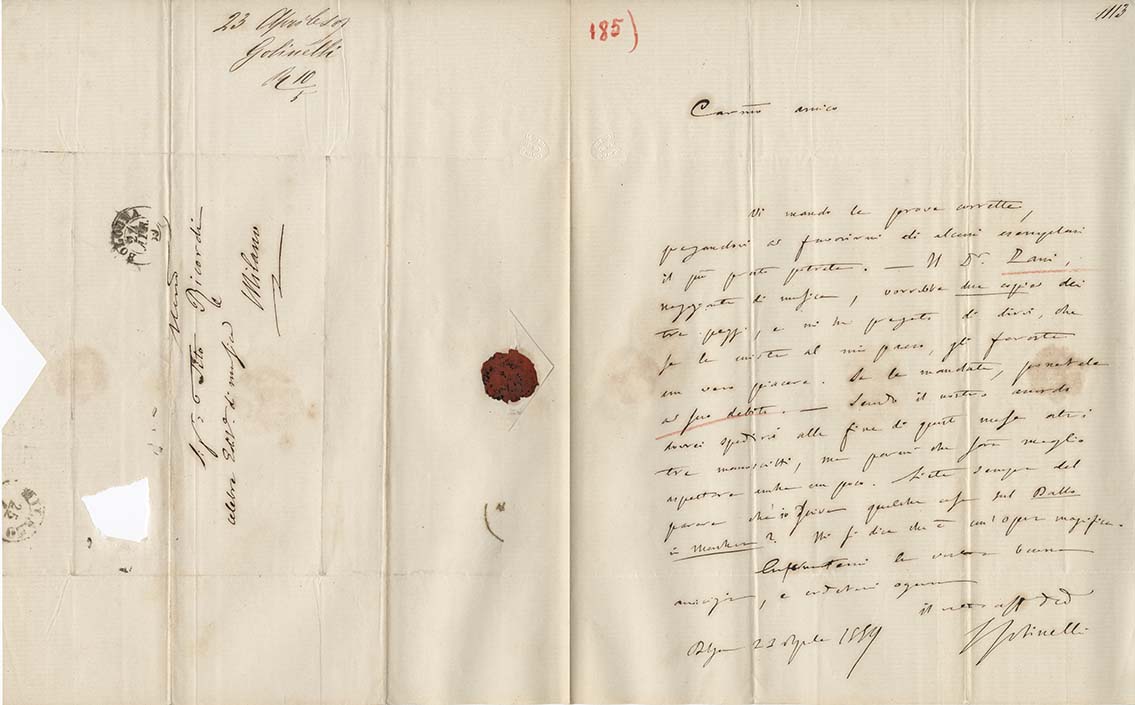 23 Aprile 59
Golinelli
R 10/5
185)
1113
BOLOGNA
Sig: Tito Ricordi
celebre Edit.e di musica
Milano
MILANO
25
Carmo amico
Vi mando le prove corrette,
pregandovi a favorirmi di alcuni esemplari
il più presto potrete. — Il Dr. Zani,
negoziante di musica, vorrebbe due copie dei
tre pezzi, e mi ha pregato di dirvi, che
se le unirete al mio pacco, gli farete
un vero piacere. Se le mandate, ponetele
a suo debito. — Secondo il nostro accordo
dovrei spedirvi alla fine di questo mese altri
tre manoscritti, ma parmi che sarà meglio
aspettare anche un poco. Siete sempre del
parere che io scriva qualche cosa sul Ballo
in Maschera? Mi si dice che è un'opera magnifica.
Conservatemi la vostra buona
amicizia, e credetemi ognora
il vostro aff
Bologna 23 Aprile 1859
S Golinelli